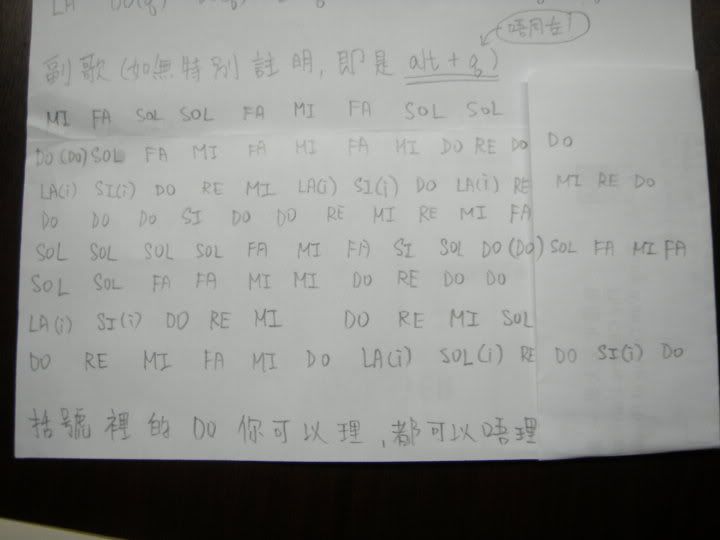 LA DO(q)
唔同㗎!
副歌(如無特別註明,即是 alt + q)
MI FA SOL SOL FA MI FA SOL SOL
DO (DO) SOL FA MI FA MI FA MI DO RE DO DO
LA(i) SI(i) DO RE MI LA(i) SI(i) DO LA(i) RE MI RE DO
DO DO DO SI DO DO RE MI RE MI FA
SOL SOL SOL SOL FA MI FA SI SOL DO (DO) SOL FA MI FA
SOL SOL FA FA MI MI DO RE DO DO
LA(i) SI(i) DO RE MI DO RE MI SOL
DO RE MI FA MI DO LA(i) SOL(i) RE DO SI(i) DO
括號裡的 DO 你可以理,都可以唔理